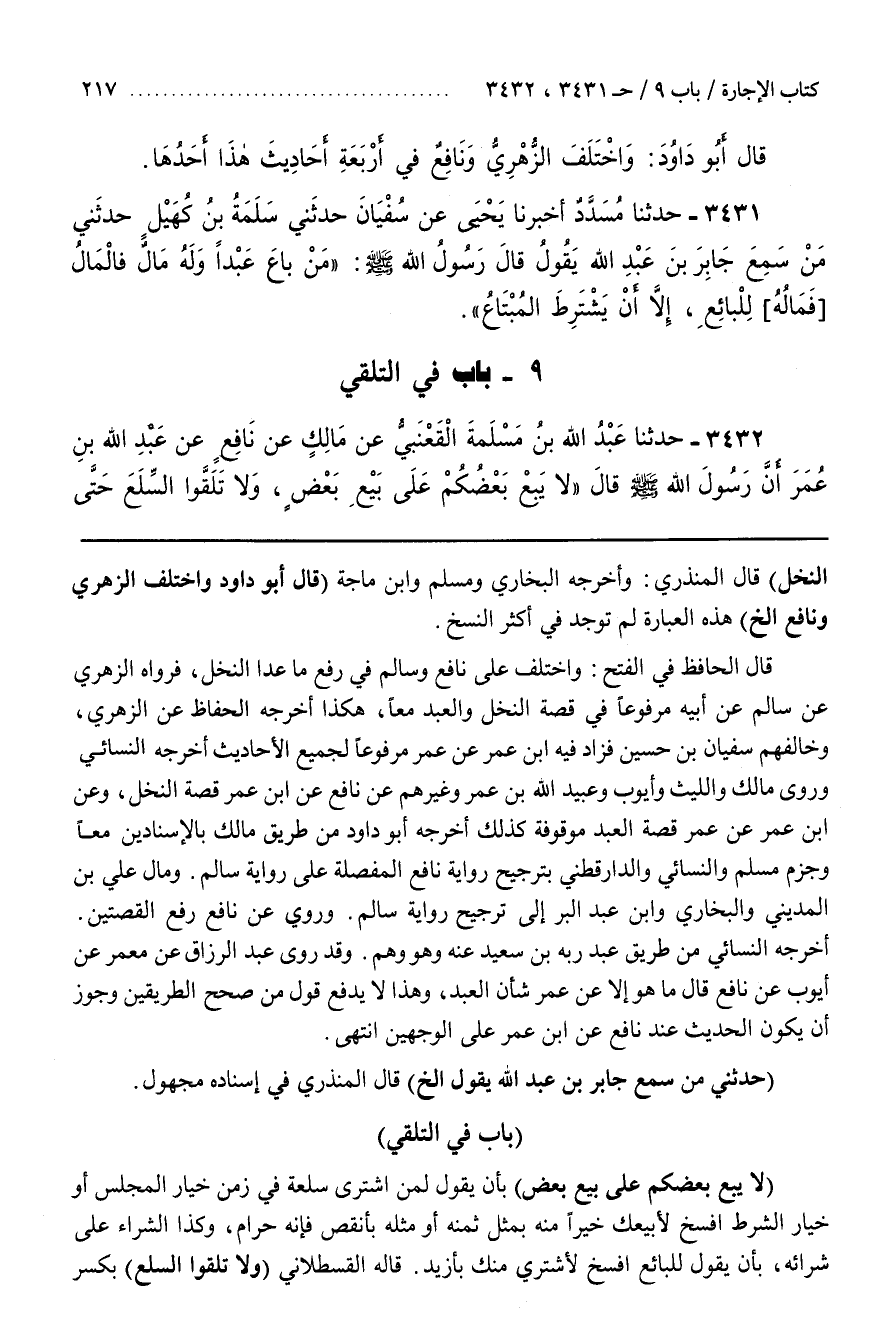 كتاب الإجارة / باب ٩ / حـ ٣٤٣١ ، ٣٤٣٢ ........................................ ٢١٧
قال أَبُو دَاوُدَ: وَاخْتَلَفَ الزُّهْرِيُّ وَنَافِعٌ في أَرْبَعَةِ أَحَادِيثَ هٰذَا أَحَدُهَا.
٣٤٣١ - حدثنا مُسَدَّدٌ أخبرنا يَحْيَى عن سُفْيَانَ حدثَني سَلَمَةُ بنُ كُهَيْلٍ حدثَني
مَنْ سَمِعَ جَابِرَ بنَ عَبْدِ الله يَقُولُ قالَ رَسُولُ الله ﷺ: «مَنْ باعَ عَبْداً وَلَهُ مَالٌ فالْمَالُ
[فَمَالُهُ] لِلْبائِعِ، إِلَّا أَنْ يَشْتَرِطَ المُبْتَاعُ».
٩ - باب في التلقي
٣٤٣٢ - حدثنا عَبْدُ الله بنُ مَسْلَمةَ الْقَعْنَبيُّ عن مَالِكٍ عن نَافِعٍ عن عَبْدِ الله بنِ
عُمَرَ أَنَّ رَسُولَ الله ﷺ قالَ «لا يَبِعْ بَعْضُكُمْ عَلَى بَيْعِ بَعْضٍ، وَلا تَلَقَّوا السِّلَعَ حَتَّى
النخل) قال المنذري: وأخرجه البخاري ومسلم وابن ماجة (قال أبو داود واختلف الزهري
ونافع الخ) هذه العبارة لم توجد في أكثر النسخ.
قال الحافظ في الفتح: واختلف على نافع وسالم في رفع ما عدا النخل، فرواه الزهري
عن سالم عن أبيه مرفوعاً في قصة النخل والعبد معاً، هكذا أخرجه الحفاظ عن الزهري،
وخالفهم سفيان بن حسين فزاد فيه ابن عمر عن عمر مرفوعاً لجميع الأحاديث أخرجه النسائي
وروى مالك والليث وأيوب وعبيد الله بن عمر وغيرهم عن نافع عن ابن عمر قصة النخل، وعن
ابن عمر عن عمر قصة العبد موقوفة كذلك أخرجه أبو داود من طريق مالك بالإسنادين معاً
وجزم مسلم والنسائي والدارقطني بترجيح رواية نافع المفصلة على رواية سالم. ومال علي بن
المديني والبخاري وابن عبد البر إلى ترجيح رواية سالم. وروي عن نافع رفع القصتين.
أخرجه النسائي من طريق عبد ربه بن سعيد عنه وهو وهم. وقد روى عبد الرزاق عن معمر عن
أيوب عن نافع قال ما هو إلا عن عمر شأن العبد، وهذا لا يدفع قول من صحح الطريقين وجوز
أن يكون الحديث عند نافع عن ابن عمر على الوجهين انتهى.
(حدثني من سمع جابر بن عبد الله يقول الخ) قال المنذري في إسناده مجهول.
(باب في التلقي)
(لا يبع بعضكم على بيع بعض) بأن يقول لمن اشترى سلعة في زمن خيار المجلس أو
خيار الشرط افسخ لأبيعك خيراً منه بمثل ثمنه أو مثله بأنقص فإنه حرام، وكذا الشراء على
شرائه، بأن يقول للبائع افسخ لأشتري منك بأزيد. قاله القسطلاني (ولا تلقوا السلع) بكسر